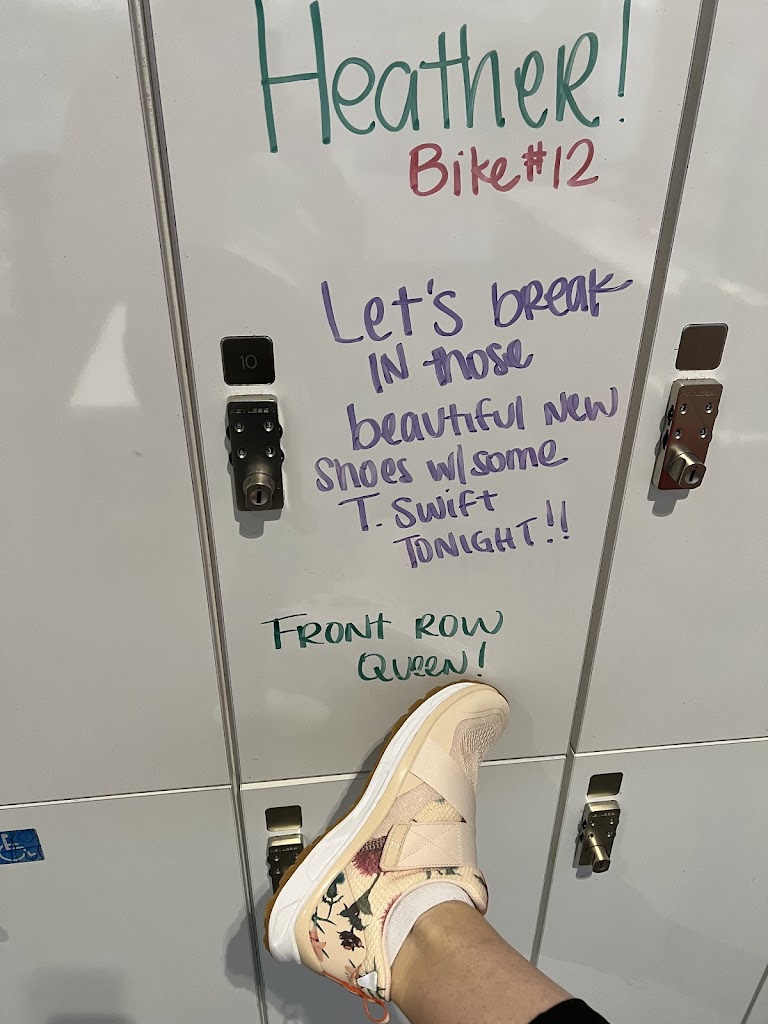 Heather!
Bike #12
Let's break
IN those
beautiful NEW
shoes w/some
T. Swift
TONIGHT!!
FRONT ROW
QUEEN!
10
KEYLESS